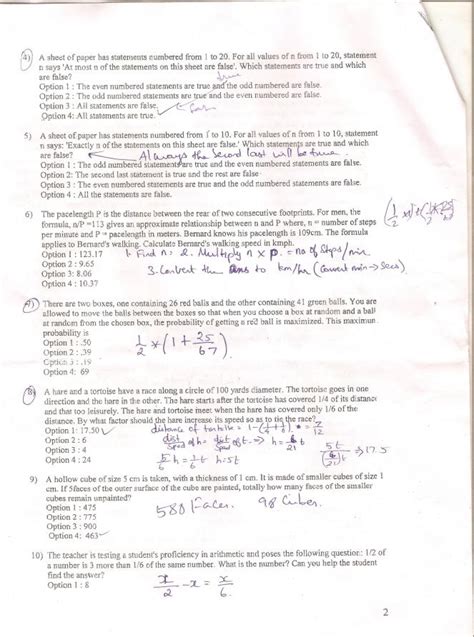 4) A sheet of paper has statements numbered from 1 to 20. For all values of n from 1 to 20, statement
n says 'At most n of the statements on this sheet are false'. Which statements are true and which
are false? true
Option 1 : The even numbered statements are true and the odd numbered are false.
Option 2 : The odd numbered statements are true and the even numbered are false.
Option 3 : All statements are false.
Option 4: All statements are true.
5) A sheet of paper has statements numbered from 1 to 10. For all values of n from 1 to 10, statement
n says: 'Exactly n of the statements on this sheet are false.' Which statements are true and which
are false? Always the second last will be true.
Option 1 : The odd numbered statements are true and the even numbered statements are false.
Option 2: The second last statement is true and the rest are false
Option 3 : The even numbered statements are true and the odd numbered statements are false.
Option 4 : All the statements are false.
6) The pacelength P is the distance between the rear of two consecutive footprints. For men, the
formula, n/P =113 gives an approximate relationship between n and P where, n = number of steps
per minute and P = pacelength in meters. Bernard knows his pacelength is 109cm. The formula
applies to Bernard's walking. Calculate Bernard's walking speed in kmph.
Option 1 : 123.17 1. Find n: 2. Multiply n x P = no of Steps/min
Option 2 : 9.65
Option 3: 8.06 3. Convert the Ans to km/hr (Convert min→Secs)
Option 4 : 10.37
7) There are two boxes, one containing 26 red balls and the other containing 41 green balls. You are
allowed to move the balls between the boxes so that when you choose a box at random and a ball
at random from the chosen box, the probability of getting a red ball is maximized. This maximum
probability is
Option 1 : .50 1/2 * (1 + 25/67)
Option 2 : .39
Option 3 : .19
Option 4: 69
8) A hare and a tortoise have a race along a circle of 100 yards diameter. The tortoise goes in one
direction and the hare in the other. The hare starts after the tortoise has covered 1/4 of its distance
and that too leisurely. The hare and tortoise meet when the hare has covered only 1/6 of the
distance. By what factor should the hare increase its speed so as to tie the race?
Option 1: 17.50 distance of tortoise = 1-(1/4+1/6) = 7/12
Option 2 : 6
Option 3 : 4
Option 4 : 24 5/6 h = 1/6 t h=5t => 17.5
9) A hollow cube of size 5 cm is taken, with a thickness of 1 cm. It is made of smaller cubes of size 1
cm. If 5faces of the outer surface of the cube are painted, totally how many faces of the smaller
cubes remain unpainted?
Option 1 : 475 580 Faces. 98 Cubes.
Option 2 : 775
Option 3 : 900
Option 4: 463
10) The teacher is testing a student's proficiency in arithmetic and poses the following question: 1/2 of
a number is 3 more than 1/6 of the same number. What is the number? Can you help the student
find the answer?
Option 1 : 8 x/2 - x = x/6.
2